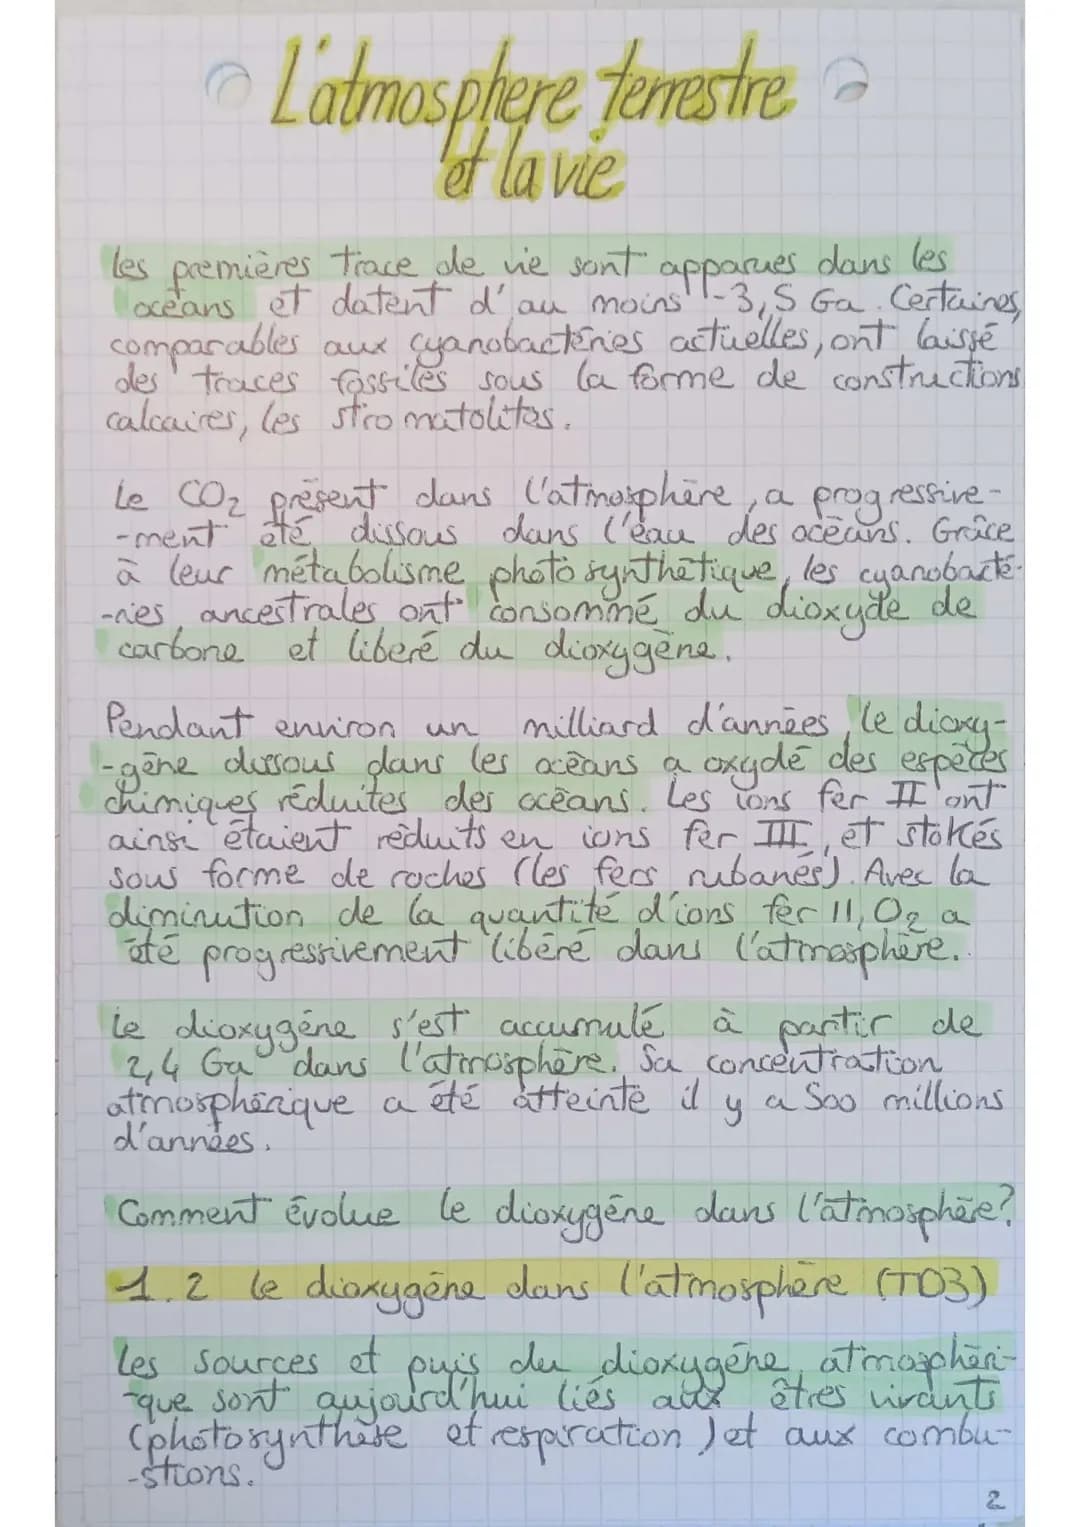 L'atmosphere terrestre
et la vie
les premières trace de vie sont apparues dans les
océans et datent d'au moins -3,5 Ga. Certaines,
comparables aux cyanobactéries actuelles, ont laissé
des traces fossiles sous la forme de constructions
calcaires, les stromatolites.
Le CO2 présent dans l'atmosphère, a progressive-
-ment été dissous dans l'eau des océans. Grâce
à leur métabolisme photosynthétique, les cyanobacté-
-ries ancestrales ont consommé du dioxyde de
carbone et liberé du dioxygène.
Pendant environ un milliard d'années, le dioxy-
-gène dissous dans les océans a oxydé des espèces
chimiques réduites des océans. Les ions fer II ont
ainsi étaient réduits en ions fer III, et stokés
sous forme de roches (les fers rubanés). Avec la
diminution de la quantité d'ions fer II, O2 a
été progressivement libéré dans l'atmosphère.
Le dioxygéne s'est accumulé à partir de
2,4 Ga dans l'atmosphère. Sa concentration
atmosphérique a été atteinte il y a 500 millions
d'années.
Comment évolue le dioxygéne dans l'atmosphère?
1.2 le dioxygéne dans l'atmosphère (TD3)
Les sources et puis du dioxygéne atmosphéri-
-que sont aujourd'hui liés aux êtres vivants
(photosynthèse et respiration) et aux combu-
-stions.
2